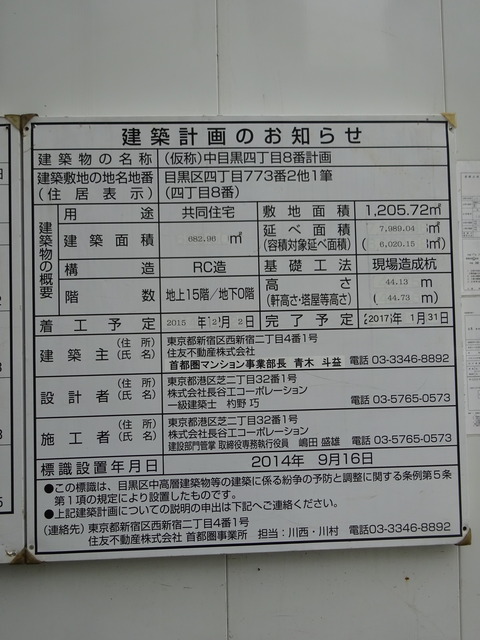 建築計画のお知らせ
建築物の名称 (仮称)中目黒四丁目8番計画
建築敷地の地名地番 目黒区四丁目773番2他1筆
(住居表示) (四丁目8番)
建築物の概要
用途 共同住宅 敷地面積 1,205.72㎡
建築面積 682.96㎡ 延べ面積 7,989.04㎡
(容積対象延べ面積) (6,020.15㎡)
構造 RC造 基礎工法 現場造成杭
階数 地上15階/地下0階 高さ 44.13 m
(軒高さ・塔屋等高さ) (44.73 m)
着工予定 2015年12月2日 完了予定 2017年1月31日
建築主 (住所) 東京都新宿区西新宿二丁目4番1号
(氏名) 住友不動産株式会社
首都圏マンション事業部長 青木 斗益 電話 03-3346-8892
設計者 (住所) 東京都港区芝二丁目32番1号
(氏名) 株式会社長谷工コーポレーション
一級建築士 杓野 巧 電話 03-5765-0573
施工者 (住所) 東京都港区芝二丁目32番1号
(氏名) 株式会社長谷工コーポレーション
建設部門管掌 取締役専務執行役員 嶋田 盛雄 電話 03-5765-0573
標識設置年月日 2014年 9月16日
●この標識は、目黒区中高層建築物等の建築に係る紛争の予防と調整に関する条例第5条
第1項の規定により設置したものです。
●上記建築計画についての説明の申出は下記へご連絡ください。
(連絡先) 東京都新宿区西新宿二丁目4番1号
住友不動産株式会社 首都圏事業所 担当:川西・川村 電話03-3346-8892